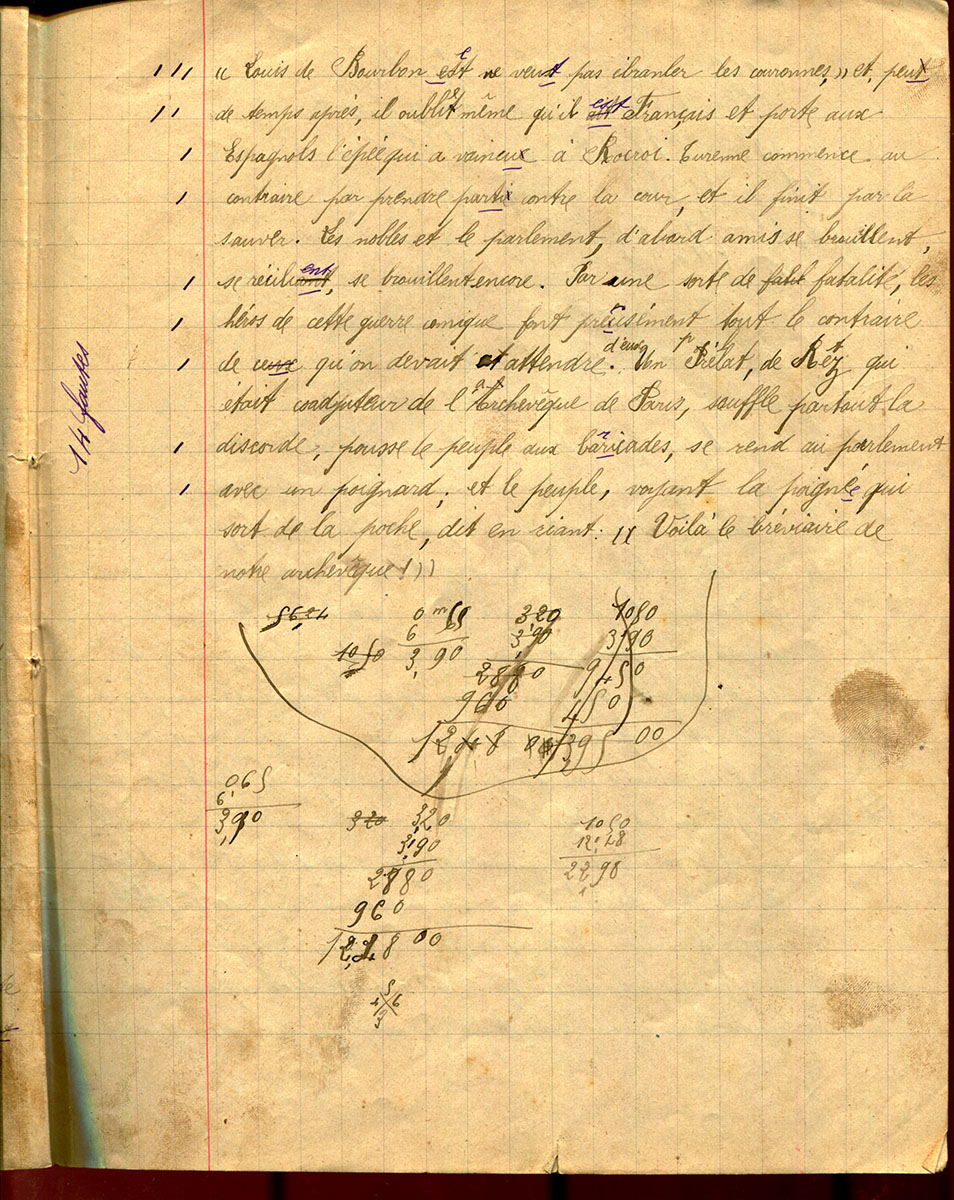 « Louis de Bourbon est ne veut pas ébranler les couronnes, » et, peut
de temps après, il oubliet même qu'il est Français et porte aux
Espagnols l'épée qui a vaincux à Rocroi. Turenne commence au
contraire par prendre parti contre la cour, et il finit par la
sauver. Les nobles et le parlement, d'abord amis se brouillent,
se récilient, se brouillent encore. Par une sorte de fatalité, les
héros de cette guerre comique font précisément tout le contraire
de ceux qu'on devait attendre d'eux. Un Prélat, de Retz qui
était coadjuteur de l'Archevêque de Paris, souffle partout la
discorde, pousse le peuple aux barricades, se rend au parlement
avec un poignard, et le peuple, voyant la poignée qui
sort de la poche, dit en riant: « Voilà le bréviaire de
notre archevêque! »
14 fautes
0 m 65 3,20 1050
6 3,90 3,90
1050 3,90 2880 9450
960
12,48 395 00
0,65
6
3,90
320 3,20
3,90
2880
960
12,48 00
1050
12,48
22,98
5
4 6
3